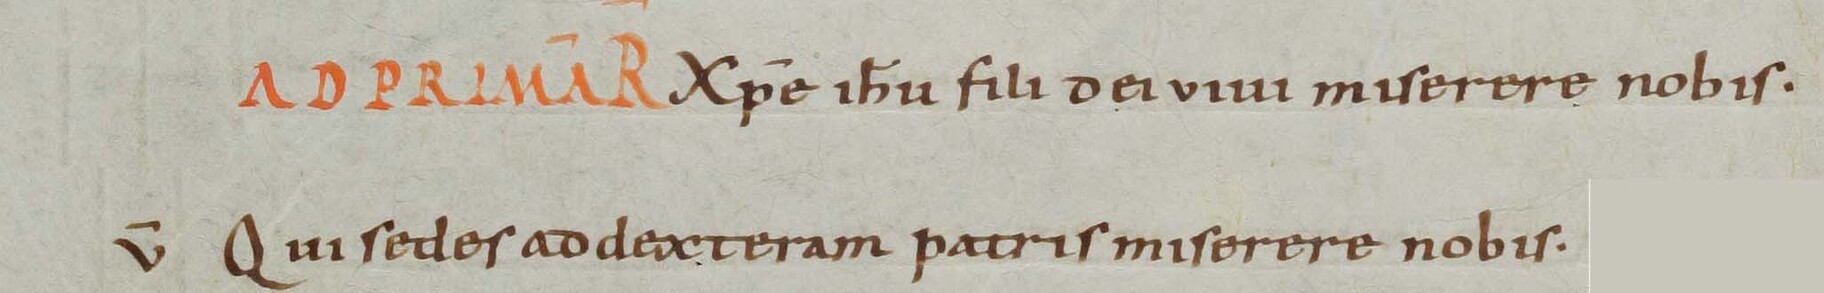 AD PRIMĀ R Xp̄e ih̄u fili dei viui miserere nobis.
v̄ Qui sedes ad dexteram patris miserere nobis.